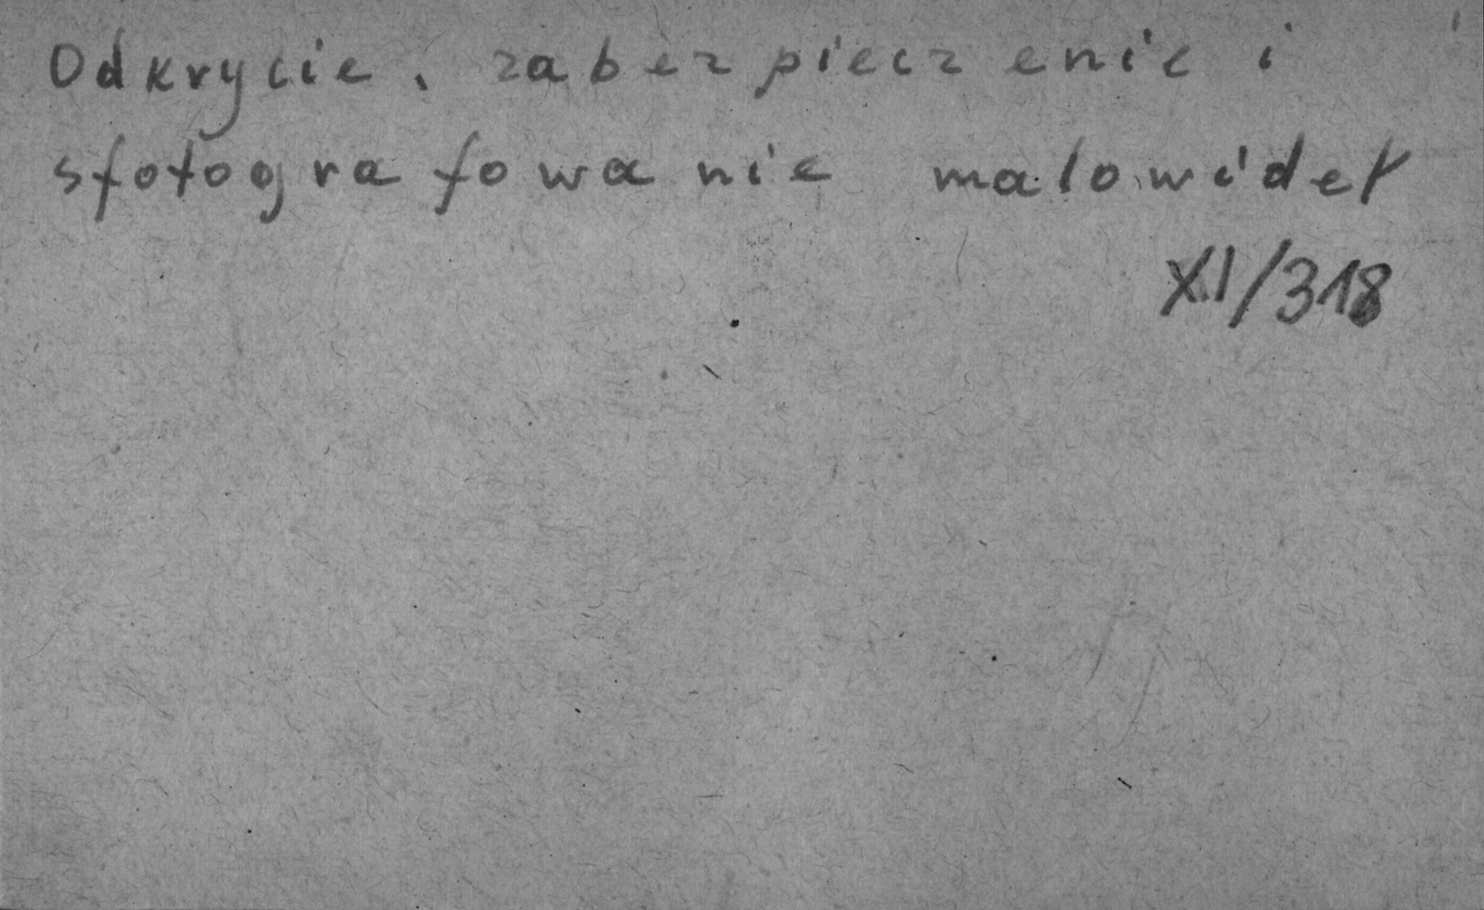 Odkrycie, zabezpieczenie i
sfotografowanie malowideł
XI/318